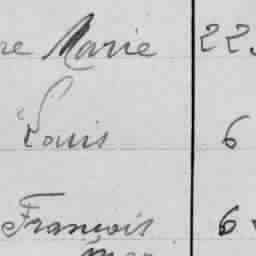 re Marie 22
Louis 6
François 6